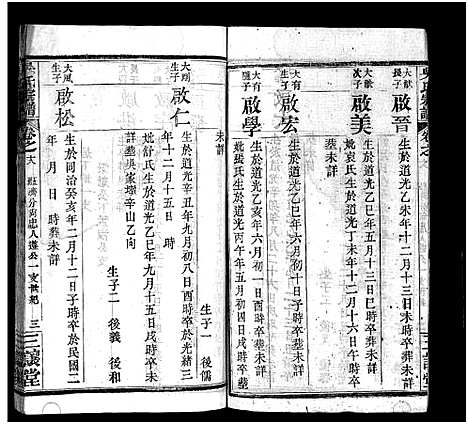 大献長子 啟晉 生於道光乙未年十二月十三日
葬未詳
大献次子 啟美 生於道光乙巳年五月十三日巳時卒葬未詳
妣袁氏生於道光乙未年十二月十六日午時
卒葬未詳
大有長子 啟宏 生於道光乙亥年六月初一日
大有 啟學 生於道光乙巳年六月初十日子時卒葬未詳
妣張氏生於道光丙午年五月初四日戌時卒葬
未詳
大 生子 啟仁 生於道光辛丑年九月初八日酉時卒於光緒三
年十二月十五日 時
妣舒氏生於道光乙巳年九月十五日戌時卒未
詳葬吳家塝辛山乙向
生子一 後儒
生子二 後義 後和
大鳳生子 啟松 生於同治癸亥年二月十二日子時卒於民國二
年 月 日 時葬未詳
氏宗譜 卷之 六 公一支世紀 三 三讓堂